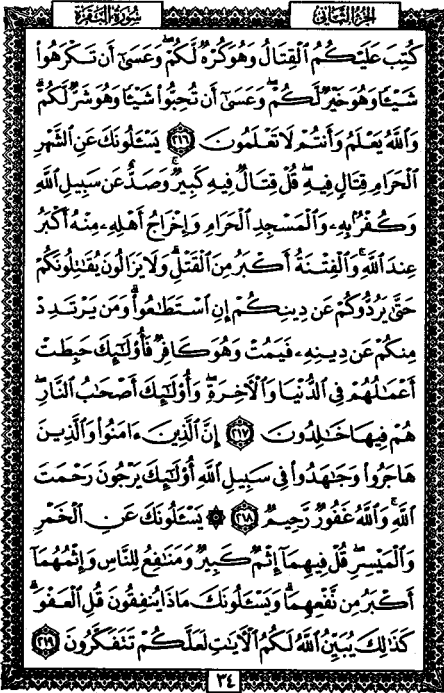 سُورَةُ البَقَرَةِ الجُزْءُ الثَّانِي
كُتِبَ عَلَيْكُمُ ٱلْقِتَالُ وَهُوَ كُرْهٌ لَّكُمْ وَعَسَىٰٓ أَن تَكْرَهُوا۟
شَيْـًٔا وَهُوَ خَيْرٌ لَّكُمْ وَعَسَىٰٓ أَن تُحِبُّوا۟ شَيْـًٔا وَهُوَ شَرٌّ لَّكُمْ
وَٱللَّهُ يَعْلَمُ وَأَنتُمْ لَا تَعْلَمُونَ ٢١٦ يَسْـَٔلُونَكَ عَنِ ٱلشَّهْرِ
ٱلْحَرَامِ قِتَالٍ فِيهِ قُلْ قِتَالٌ فِيهِ كَبِيرٌ وَصَدٌّ عَن سَبِيلِ ٱللَّهِ
وَكُفْرٌۢ بِهِۦ وَٱلْمَسْجِدِ ٱلْحَرَامِ وَإِخْرَاجُ أَهْلِهِۦ مِنْهُ أَكْبَرُ
عِندَ ٱللَّهِ وَٱلْفِتْنَةُ أَكْبَرُ مِنَ ٱلْقَتْلِ وَلَا يَزَالُونَ يُقَـٰتِلُونَكُمْ
حَتَّىٰ يَرُدُّوكُمْ عَن دِينِكُمْ إِنِ ٱسْتَطَـٰعُوا۟ وَمَن يَرْتَدِدْ
مِنكُمْ عَن دِينِهِۦ فَيَمُتْ وَهُوَ كَافِرٌ فَأُو۟لَـٰٓئِكَ حَبِطَتْ
أَعْمَـٰلُهُمْ فِى ٱلدُّنْيَا وَٱلْـَٔاخِرَةِ وَأُو۟لَـٰٓئِكَ أَصْحَـٰبُ ٱلنَّارِ
هُمْ فِيهَا خَـٰلِدُونَ ٢١٧ إِنَّ ٱلَّذِينَ ءَامَنُوا۟ وَٱلَّذِينَ
هَاجَرُوا۟ وَجَـٰهَدُوا۟ فِى سَبِيلِ ٱللَّهِ أُو۟لَـٰٓئِكَ يَرْجُونَ رَحْمَتَ
ٱللَّهِ وَٱللَّهُ غَفُورٌ رَّحِيمٌ ٢١٨ ۞ يَسْـَٔلُونَكَ عَنِ ٱلْخَمْرِ
وَٱلْمَيْسِرِ قُلْ فِيهِمَآ إِثْمٌ كَبِيرٌ وَمَنَـٰفِعُ لِلنَّاسِ وَإِثْمُهُمَآ
أَكْبَرُ مِن نَّفْعِهِمَا وَيَسْـَٔلُونَكَ مَاذَا يُنفِقُونَ قُلِ ٱلْعَفْوَ
كَذَٰلِكَ يُبَيِّنُ ٱللَّهُ لَكُمُ ٱلْـَٔايَـٰتِ لَعَلَّكُمْ تَتَفَكَّرُونَ ٢١٩
٣٤